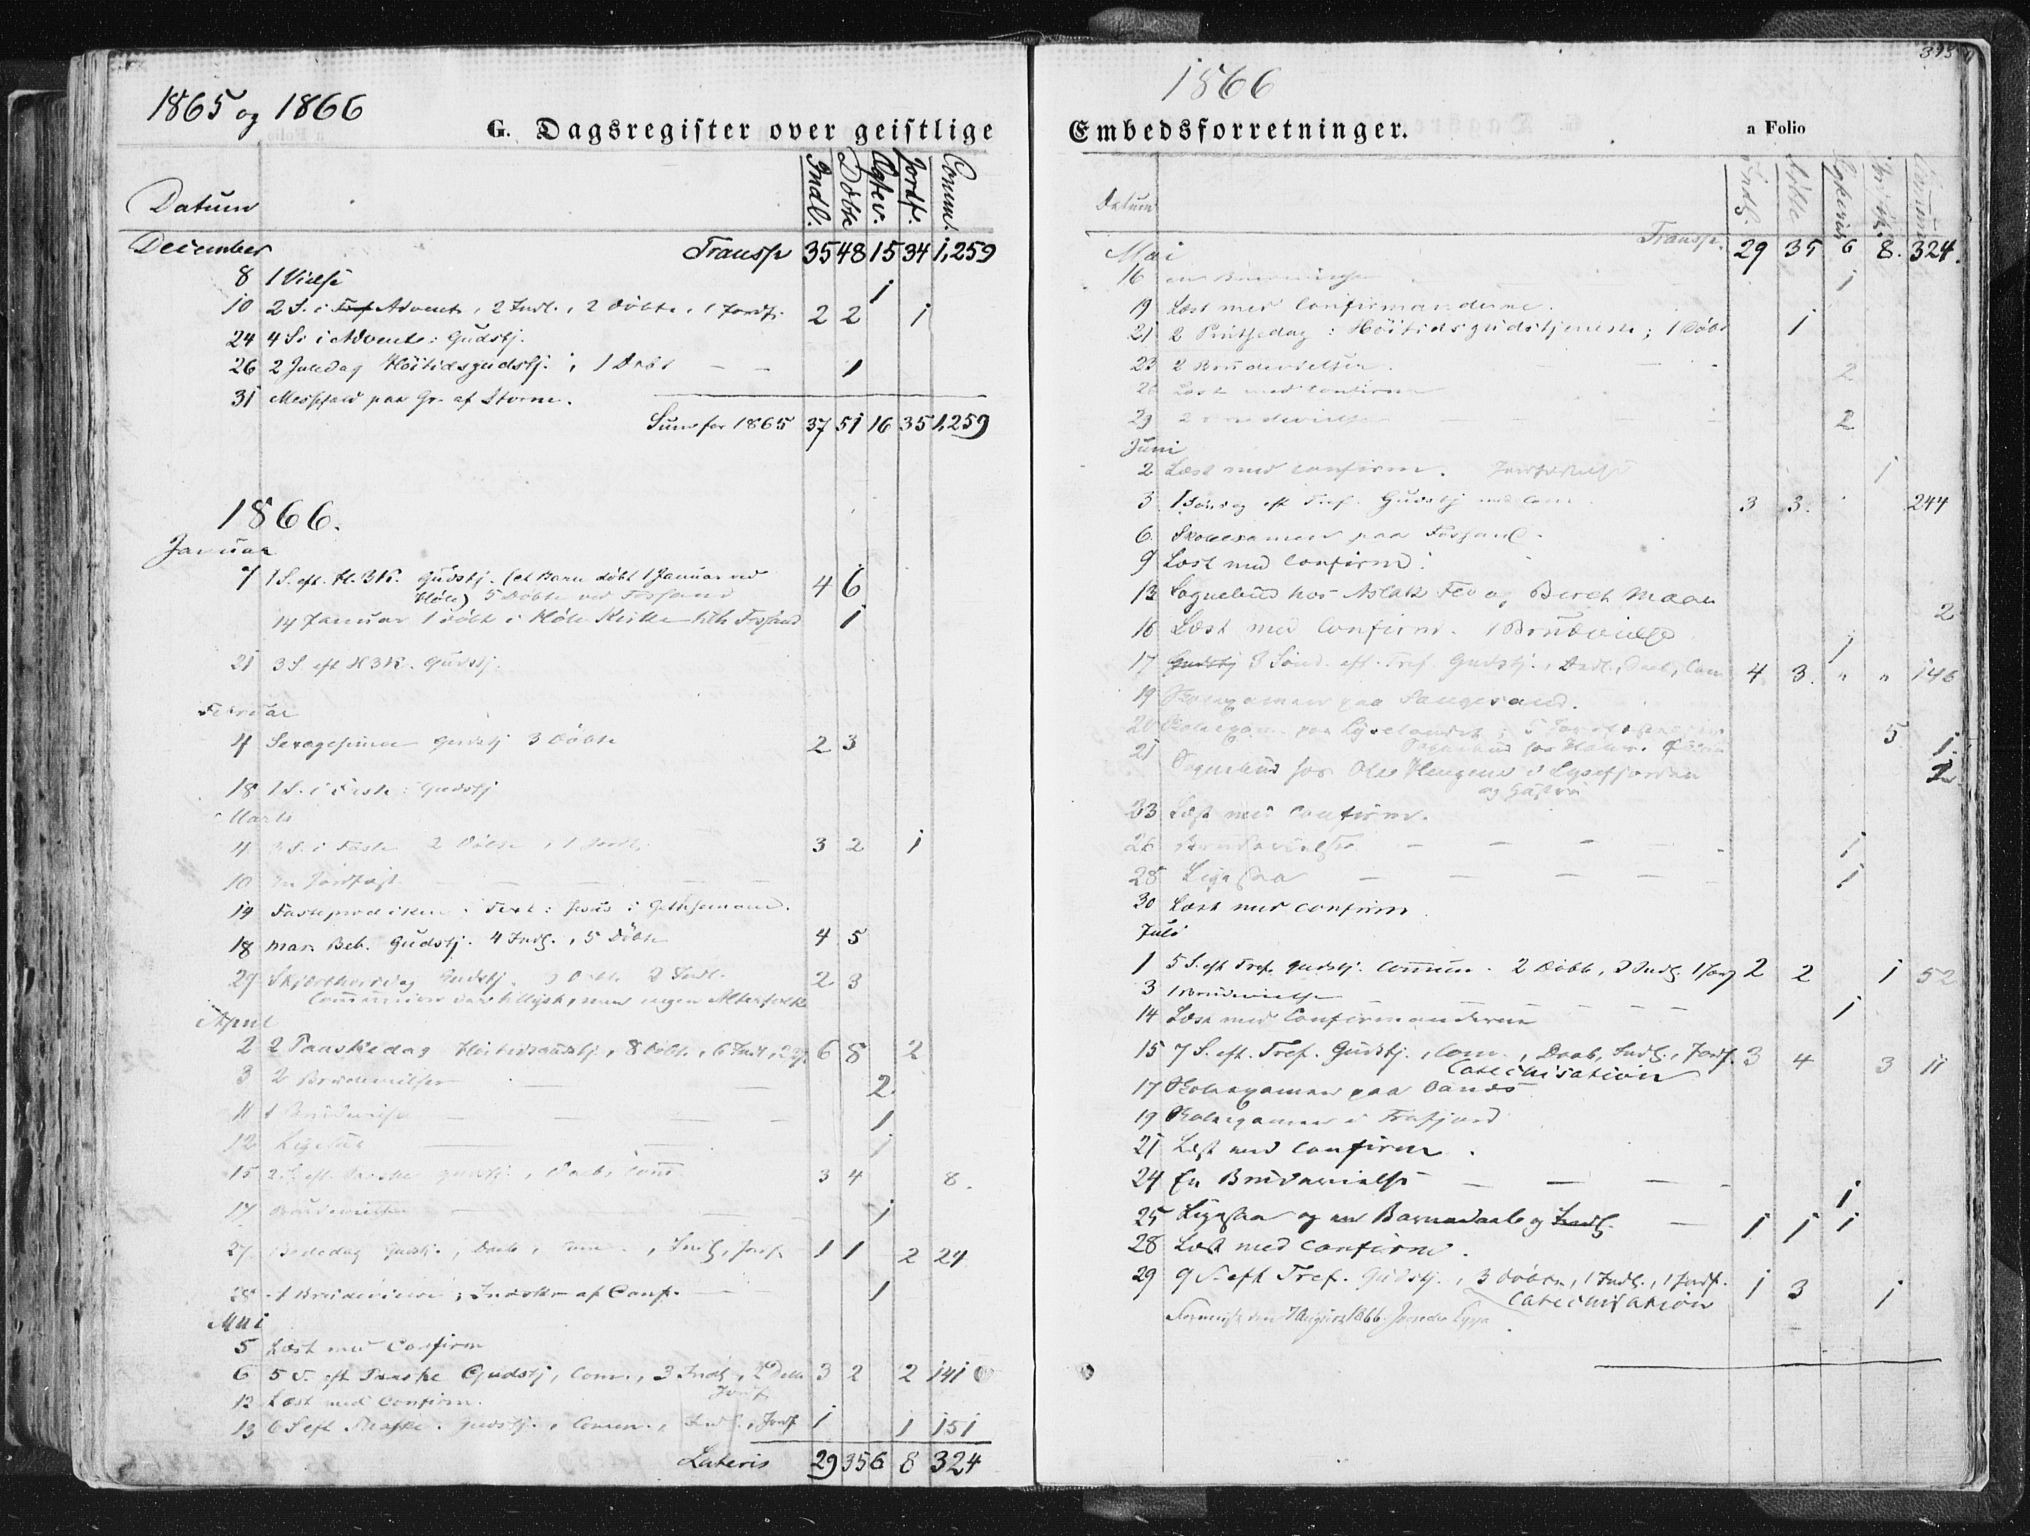 1865 og 1866
G. Dagsregister over geistlige
Datum Indl. Døbte Ægtev. Jordf. Comm.
December Transp 35 48 15 34 1,259
8 1 Vielse 1
10 2 S. i Advent, 2 Indl., 2 Døbte, 1 Jordf. 2 2 1
24 4 S. i Advent: Gudstj.
26 2 Juledag Høitidsgudstj.; 1 Døbt — — 1
31 Messefald paa Gr. af Storm.
Sum for 1865 37 51 16 35 1,259
1866.
Januar
7 1 S. eft. H. 3 K. Gudstj. (et Barn døbt 1 Januar ved 4 6
Høle) 5 Døbte ved Fossand
14 Januar 1 døbt i Høle Kirke fra Fossand 1
21 3 S. eft H 3 K. Gudstj.
Februar
4 Sexagesima Gudstj 3 Døbte 2 3
18 1 S. i Faste: Gudstj
Marts
4 3 S. i Faste 2 Døbte, 1 Jordf. 3 2 1
10 En Jordfæst — — — —
14 Fasteprædiken: Text: Jesus i Gethsemane.
18 Mar. Beb. Gudstj. 4 Indl., 5 Døbte 4 5
29 Skjærthorsdag Gudstj. 3 Døbte 2 Indl. 2 3
Communion var tillyst, men ingen Altergjæster
April
2 2 Paaskedag Høitidsgudstj., 8 Døbte, 6 Indl., 2 Jf. 6 8 2
3 2 Brudevielser — — 2
11 1 Brudevielse — — 1
12 Ligesaa — — 1
15 2 S. eft. Paaske Gudstj., Daab, Com 3 4 8.
17 Brudevielse — — 1
27. Bededag Gudstj., Daab, Com., Indl., Jordf. 1 1 2 24
28 1 Brudevielse; Indskr. af Conf. — 1
Mai
5 Læst med Confirm
6 5 S. eft Paaske Gudstj, Com., 3 Indl., 2 Døbte 3 2 2 141
Jordf
12 Læst med Confirm.
13 6 S eft Paaske. Gudstj., Comm., Indl., Jordf 1 1 151
Lateris 29 35 6 8 324
1866
Embedsforretninger. a Folio
393
Datum Indl. Døbte Ægtevies Jordf. Commun
Transp. 29 35 6 8. 324.
Mai
16 en Brudevielse 1
19 Læst med Confirmanderne.
21 2 Pintsedag: Høitidsgudstjeneste; 1 Døbt 1
23 2 Brudevielser. — — 2
26 Læst med Confirm
29 2 Brudevielser — — 2
Juni
2 Læst med Confirm. Jordfæstelse 1
3 1 Søndag eft Tref. Gudstj med Com 3 3. 244
6. Skoleexamen paa Fossand.
9 Læst med Confirm.
13 Sognebud hos Aslak Flo og Beret Maan 2
16 Læst med Confirm. 1 Brudevielse 1
17 Gudstj 3 Sønd. eft. Tref. Gudstj., Indl., Daab, Com 4 3. " " 146
19 Skoleexamen paa Songesand.
20 Skoleexam. paa Lyselandet; 5 Jordfæstelser 5 1.
21 Sognebud hos Ole Haugene i Lysefjorden
og Hustru
23 Læst med Confirm.
26 Brudevielse — — — — 1
28 Ligesaa — — — — 1
30 Læst med Confirm
Juli
1 5 S. eft Tref. Gudstj. Commun. 2 Døbt, 2 Indl 1 Jordf 2 2 1 52
3 1 Brudevielse — — — 1
14 Læst med Confirmanderne
15 7 S. eft. Tref. Gudstj., Com., Daab, Indl., Jordf. 3 4 3 11
Catechisation
17 Skoleexamen paa Oanes
19 Skoleexamen i Frafjord
21 Læst med Confirm.
24 En Brudevielse — — — — 1
25 Ligesaa og en Barnedaab og Indl. — 1 1 1
28 Læst med Confirm.
29 9 S. eft Tref. Gudstj., 3 Døbte, 1 Indl., 1 Jordf. 1 3 1
Catechisation